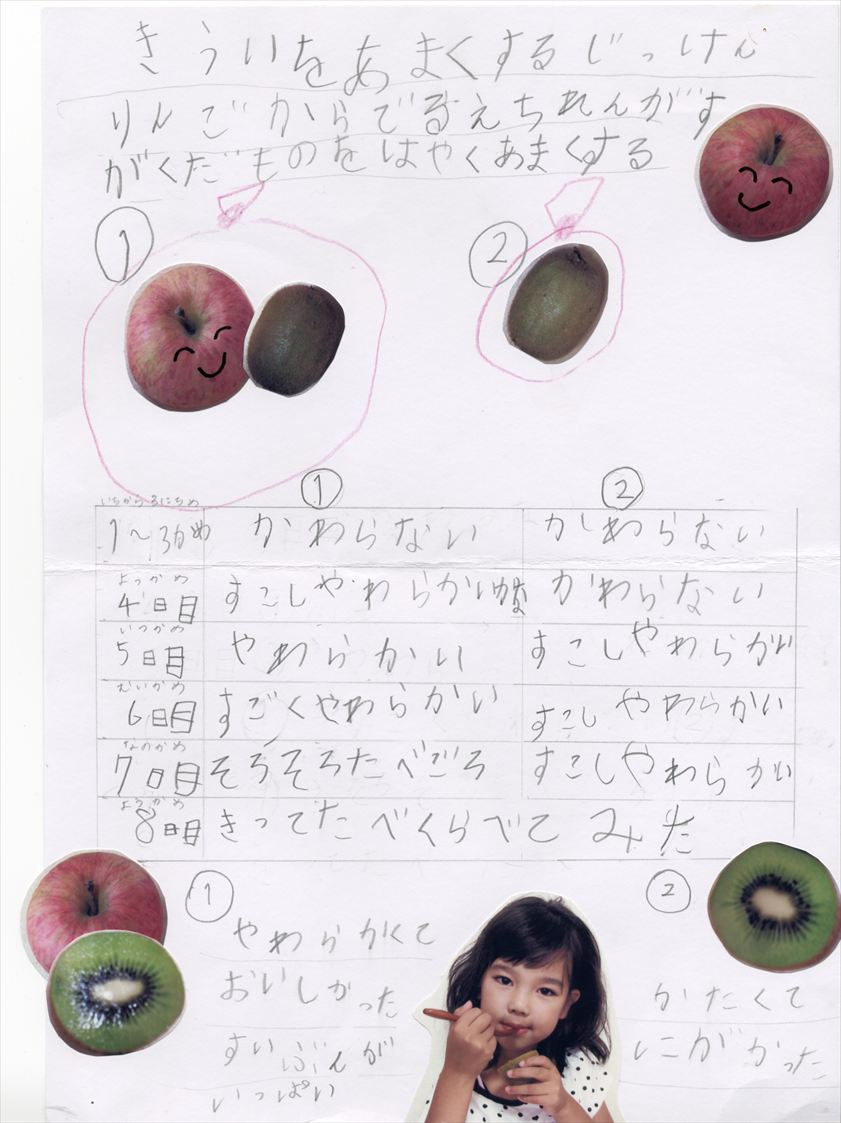 きういをあまくするじっけん
りんごからでるえちれんがす
がくだものをはやくあまくする
1
2
① ②
いちからみにちめ
1～3かめ かわらない かわらない
よっかめ
4日目 すこしやわらかい かわらない
いつかめ
5日目 やわらかい すこしやわらかい
むいかめ
6日目 すごくやわらかい すこしやわらかい
なのかめ
7日目 そろそろたべごろ すこしやわらかい
ようかめ
8日目 きってたべくらべてみた
①
やわらかくて
おいしかった
すいぶんが
いっぱい
②
かたくて
にがかった